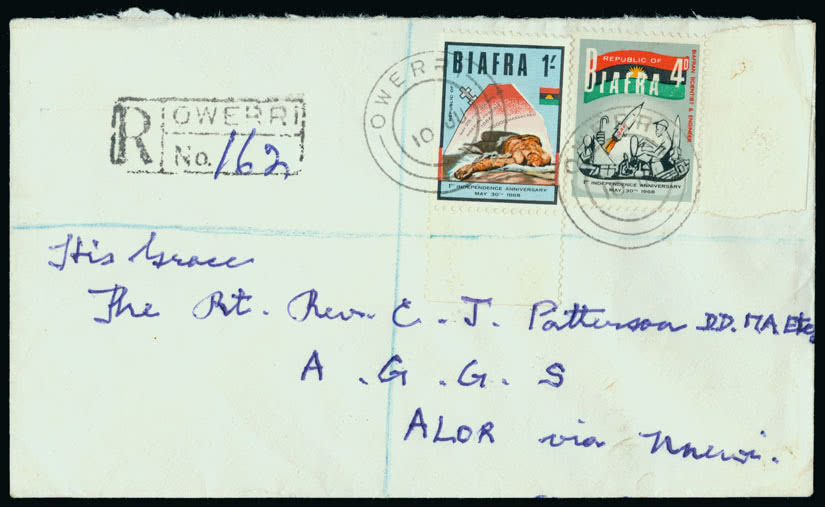 BIAFRA 1/-
REPUBLIC OF
1ST INDEPENDENCE ANNIVERSARY
MAY 30TH 1968
REPUBLIC OF
BIAFRA 4D
BIAFRAN SCIENTIST & ENGINEER
1ST INDEPENDENCE ANNIVERSARY
MAY 30TH 1968
OWERRI
10
R OWERRI
No. 162
His Grace
The Rt. Rev. C. J. Patterson D.D. M.A. Etc
A.G.G.S
ALOR via Nnewi.